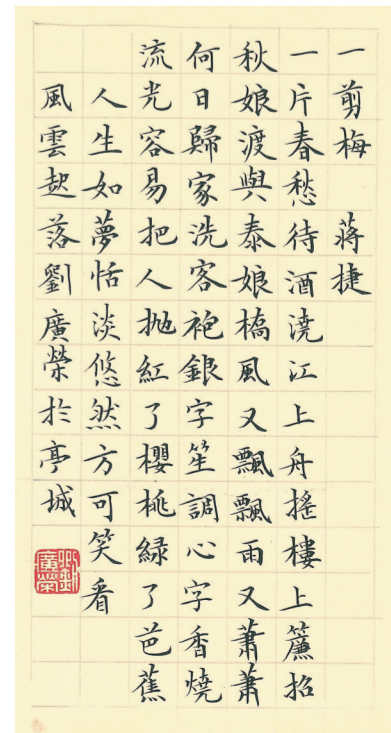 一剪梅 蔣捷
一片春愁待酒澆江上舟搖樓上簾招
秋娘渡與泰娘橋風又飄飄雨又蕭蕭
何日歸家洗客袍銀字笙調心字香燒
流光容易把人拋紅了櫻桃緑了芭蕉
人生如夢恬淡悠然方可笑看
風雲起落劉廣榮於亭城